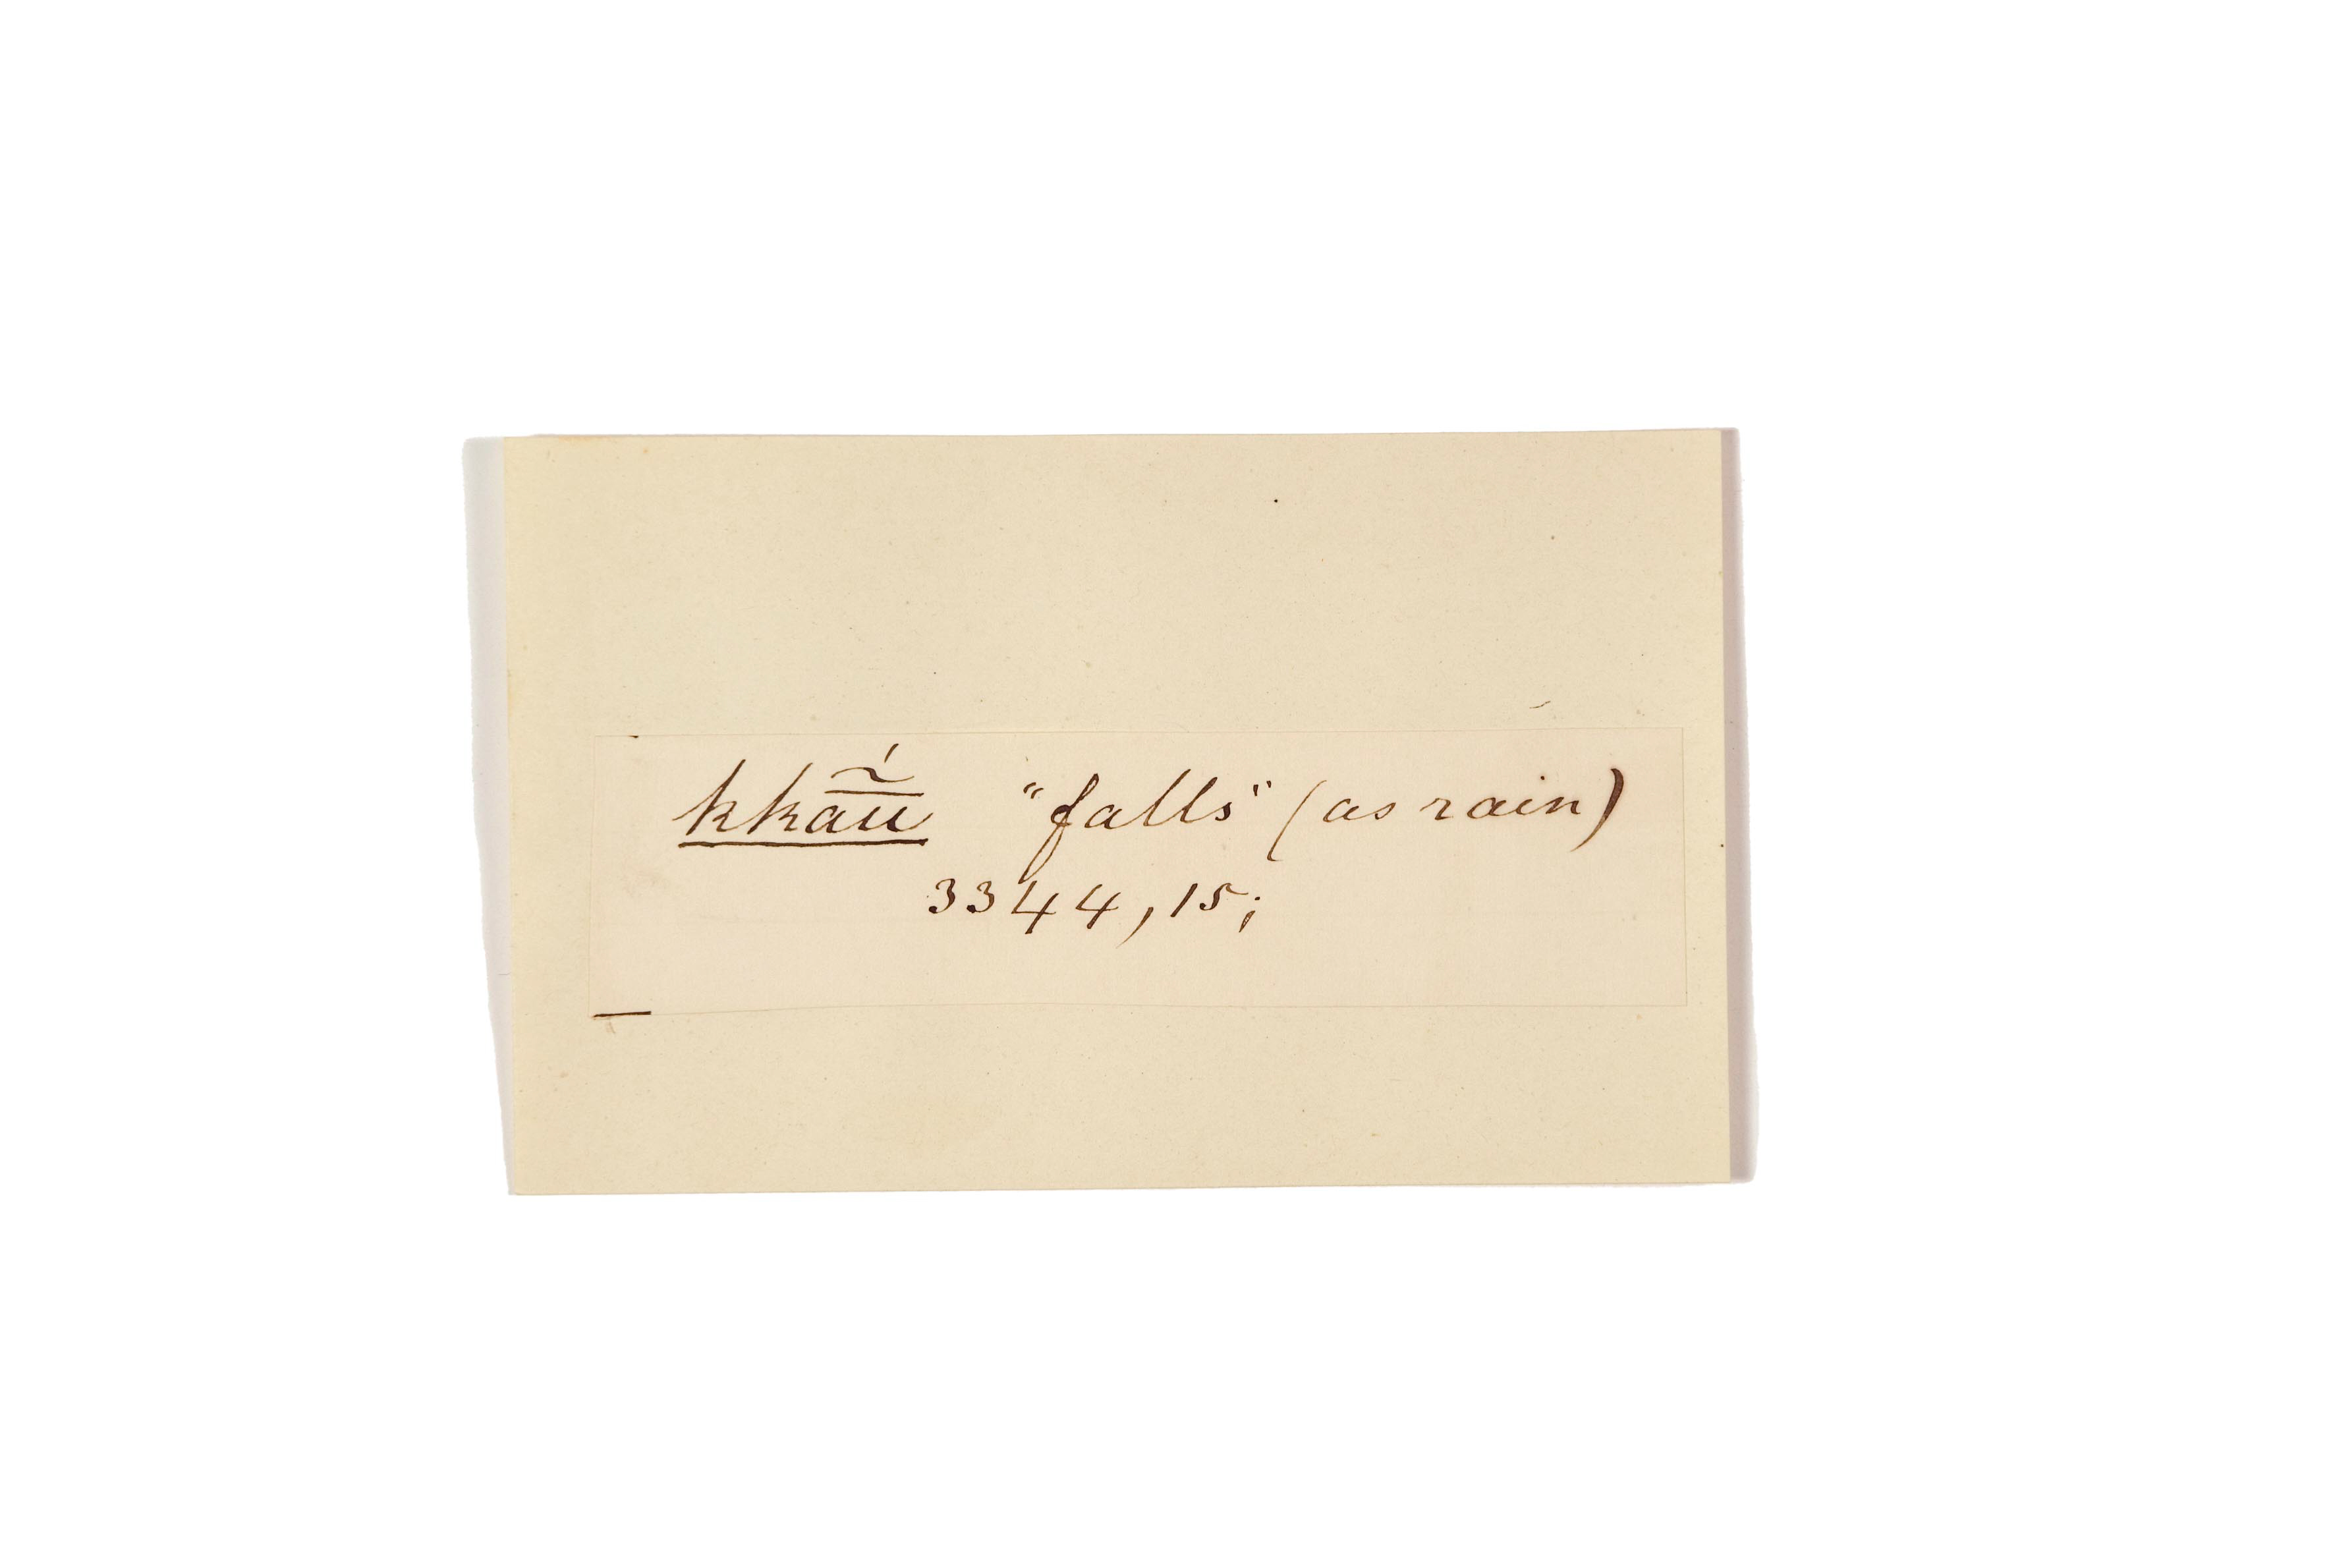 kkā̃́ū "falls" (as rain)
3344, 15;